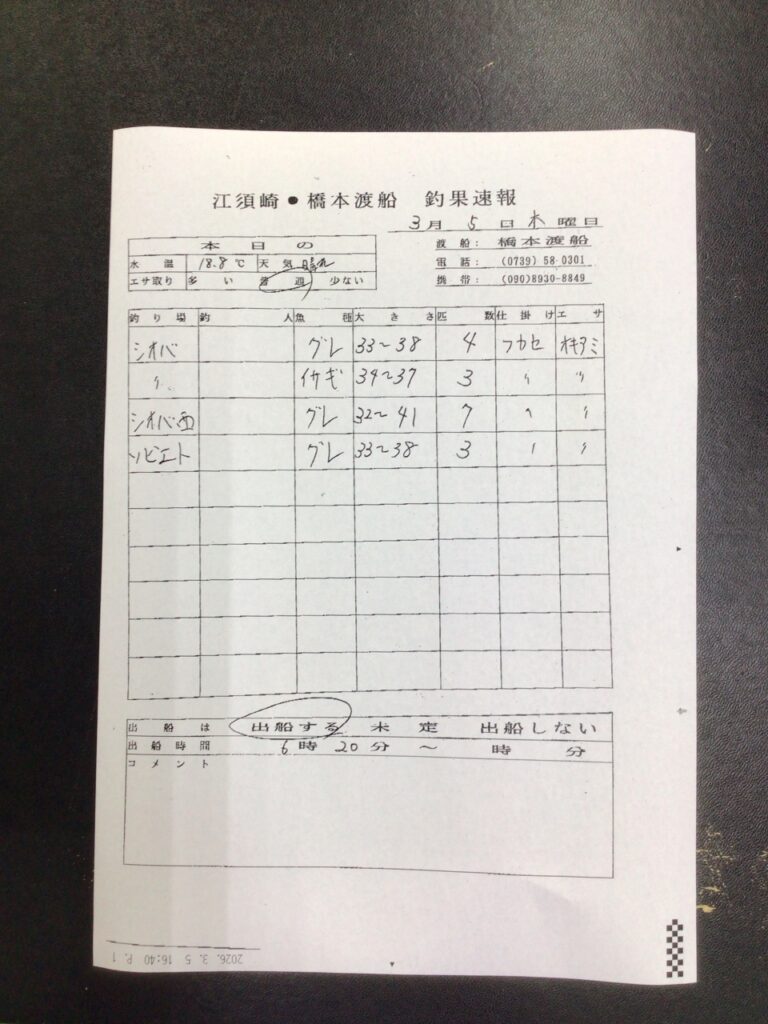 江須崎●橋本渡船 釣果速報
3月 5日 木曜日
本日の
水温 18.8℃ 天気 晴れ
エサ取り 多い 普通 少ない
渡船: 橋本渡船
電話: (0739) 58-0301
携帯: (090)8930-8849
釣り場 釣人 魚種 大きさ 匹数 仕掛け エサ
シオバ グレ 33〜38 4 フカセ オキアミ
〃 イサギ 34〜37 3 〃 〃
シオバ西 グレ 32〜41 7 〃 〃
ソビエト グレ 33〜38 3 〃 〃
出船は 出船する 未定 出船しない
出船時間 6時20分 〜 時 分
コメント
2026. 3. 5 16:40 P. 1